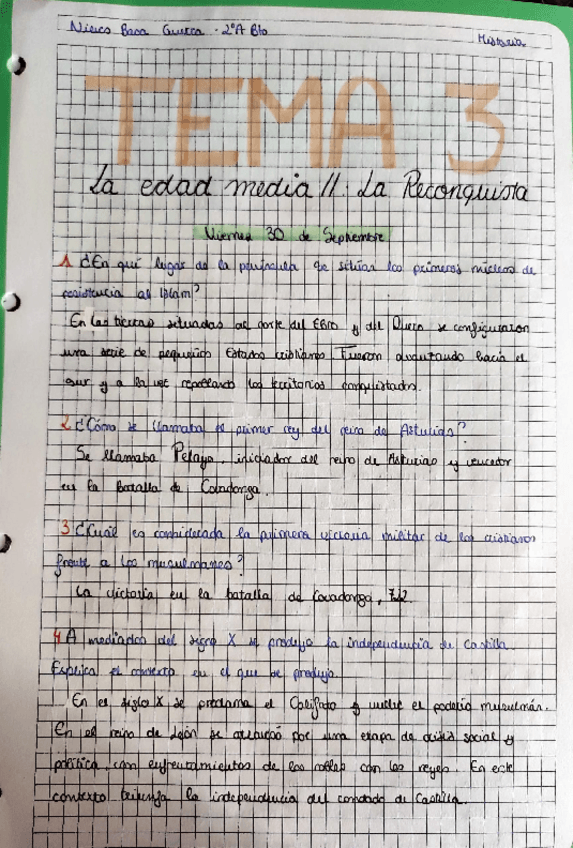 Nieves Baca Guerra · 2ºA Bto
Historia
TEMA 3
La edad media II: La Reconquista
Viernes 30 de Septiembre
1 ¿En qué lugar de la península se sitúan los primeros núcleos de
resistencia al Islam?
En las tierras situadas al norte del Ebro y del Duero se configuraron
una serie de pequeños Estados cristianos. Fueron avanzando hacia el
sur y a la vez repoblando los territorios conquistados.
2 ¿Cómo se llamaba el primer rey del reino de Asturias?
Se llamaba Pelayo, iniciador del reino de Asturias y vencedor
en la Batalla de Covadonga.
3 ¿Cuál es considerada la primera victoria militar de los cristianos
frente a los musulmanes?
La victoria en la batalla de Covadonga, 722
4 A mediados del siglo X se produjo la independencia de Castilla.
Explica el contexto en el que se produjo.
En el siglo X se proclama el Califato y vuelve el poderío musulmán.
En el reino de León se atravesó por una etapa de crisis social y
política, con enfrentamientos de los nobles con los reyes. En este
contexto la independencia del condado de Castilla.